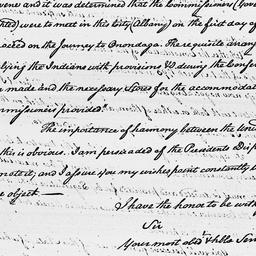 vene and it was determined that the Commissioners (
ted) were to meet in this City (Albany) on the first day of
aceed on the Journey to Onondaga. The requisite arran
lying the Indians with provisions &c during the Confer
made and the necessary Stores for the accommodation
mmissioners provided."
The importance of harmony between the Uni
this is obvious. I am persuaded of the Presidents Disp
mote it, and I assure you my wishes point constantly
e object —
I have the honor to be with
Sir
Your most obdt. & hble Ser